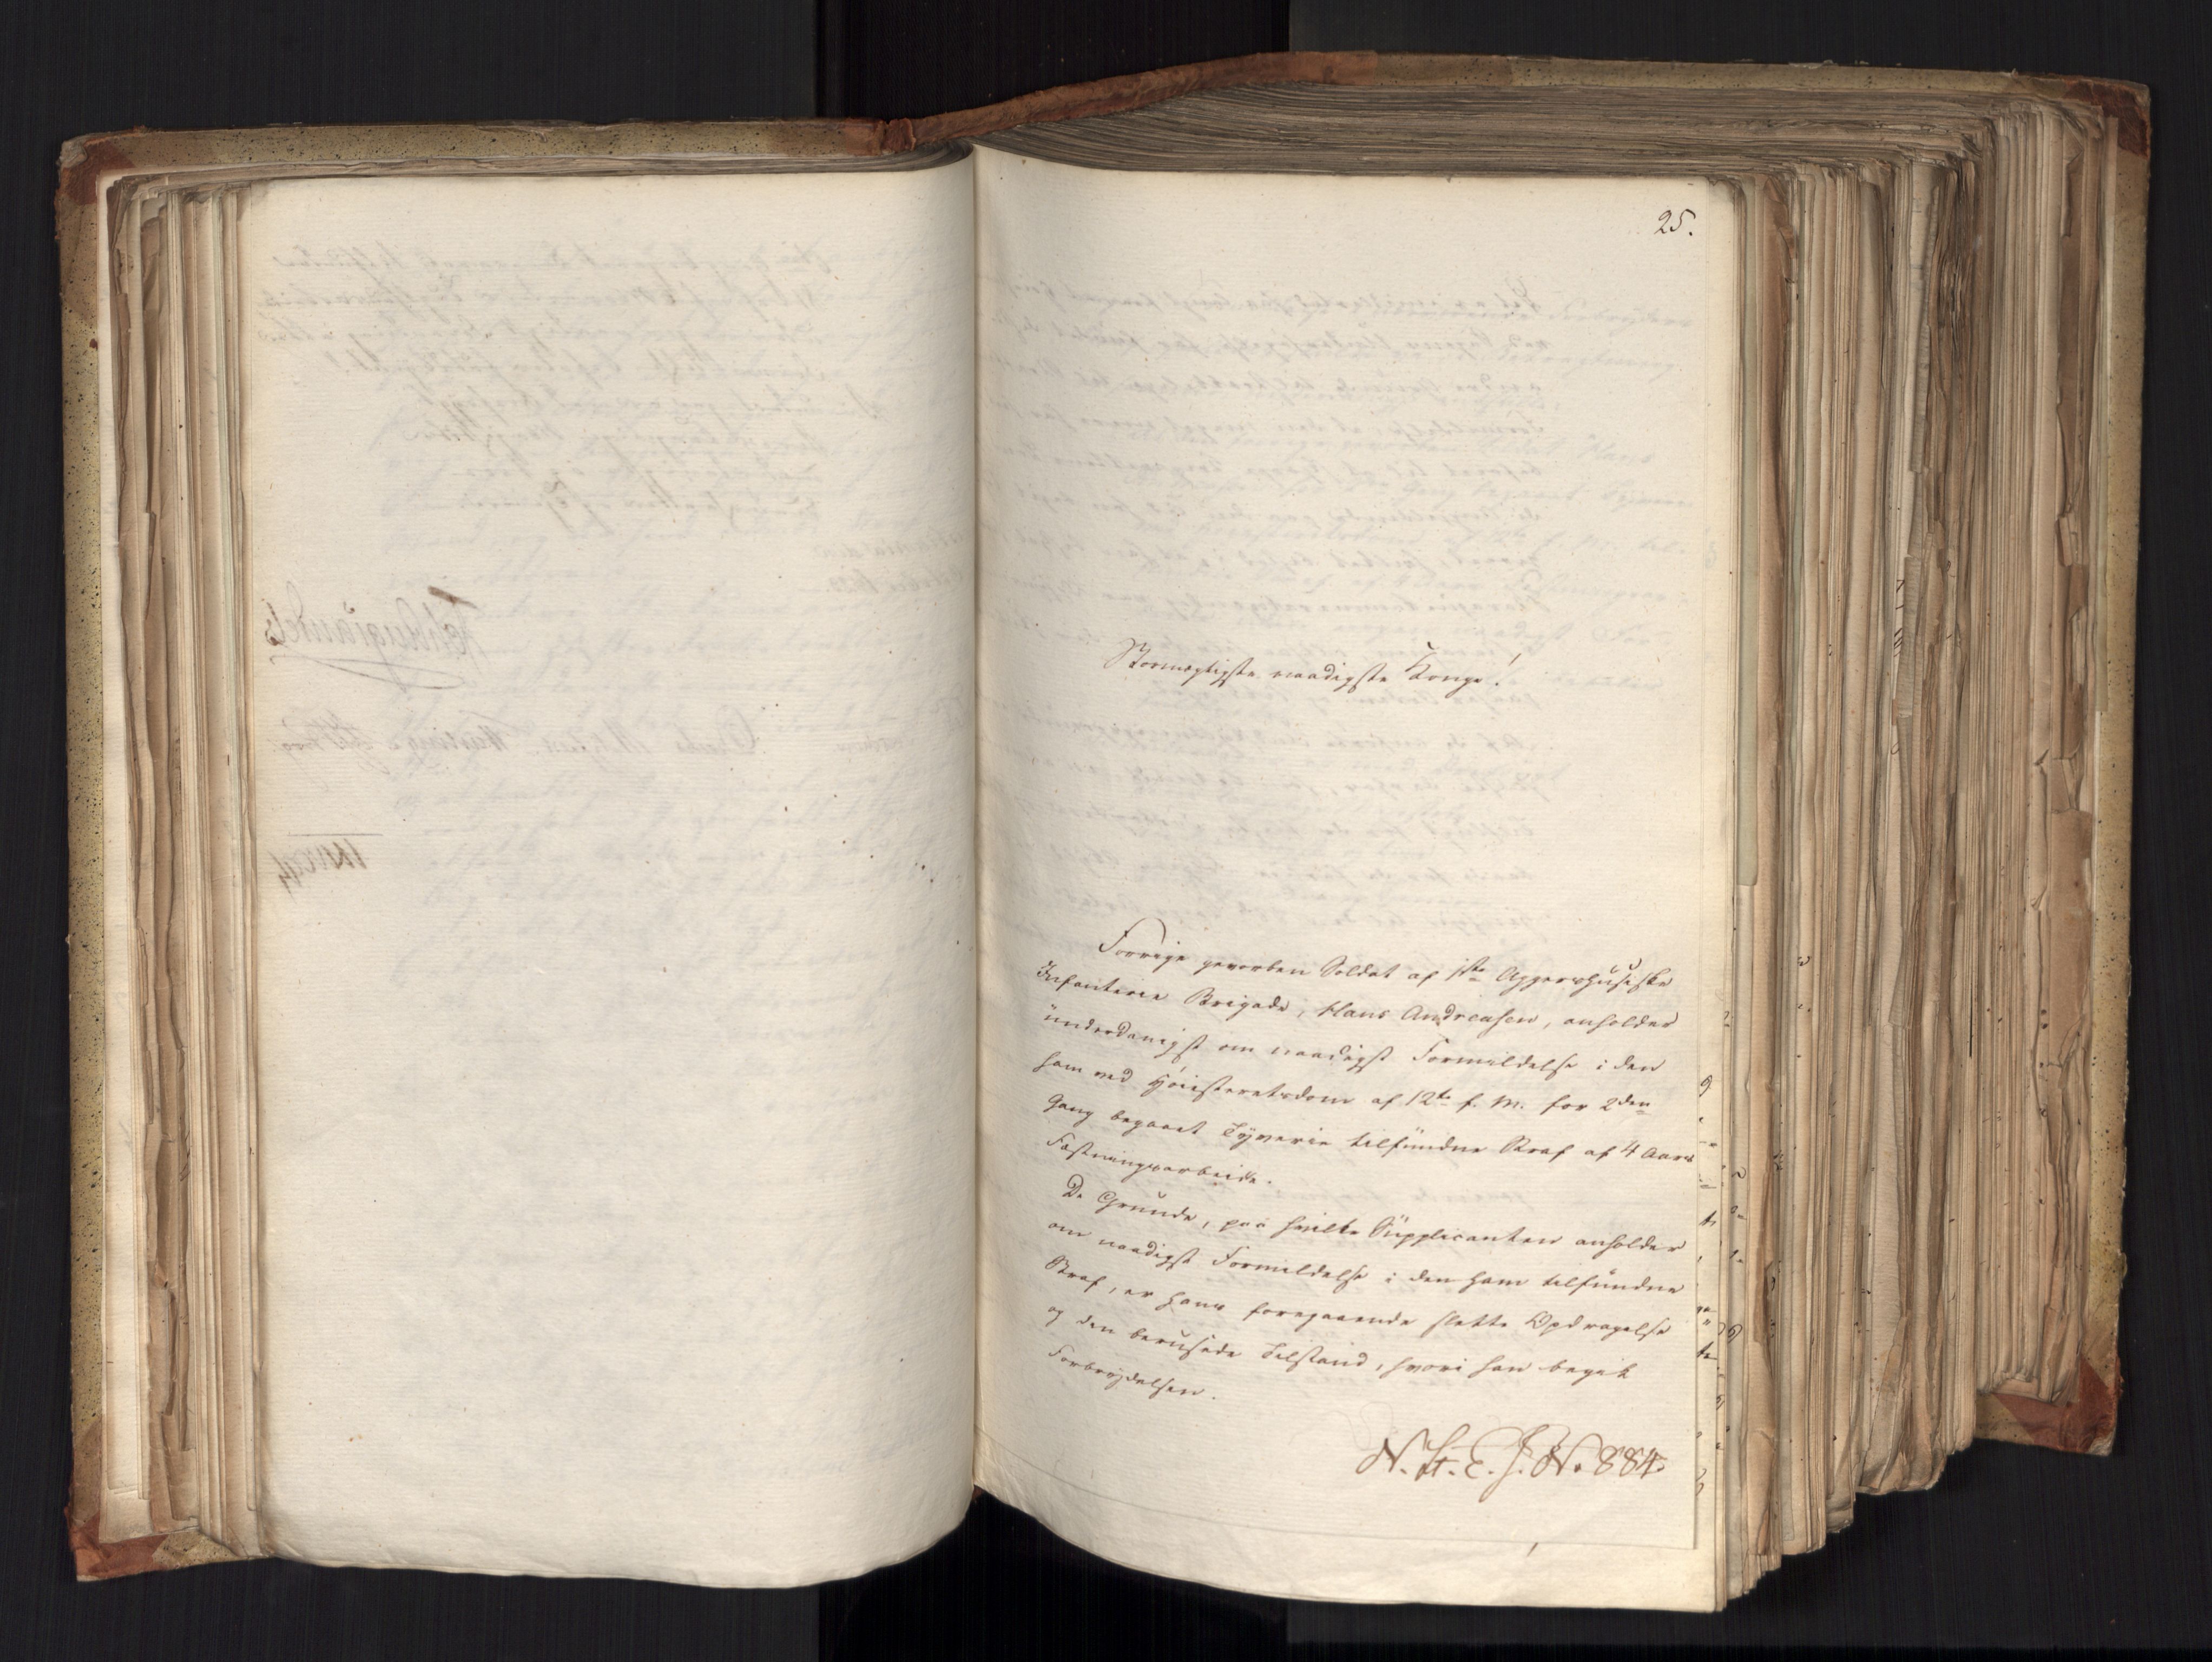 25.
Stormægtigste naadigste Konge!
Forrige gevorben Soldat af 1ste Aggershusiske
Infanterie Brigade, Hans Andreasen, anholder
underdanigst om naadigst Formildelse i den
ham ved Høiesteretsdom af 12te f. M. for 2den
Gang begaaet Tyverie tilfundne Straf af 4 Aars
Fæstningsarbeide.
De Grunde, paa hvilke Supplicanten anholder
om naadigst Formildelse i den ham tilfundne
Straf, er hans foregaaende slette Opdragelse
og den berusede Tilstand, hvori han begik
Forbrydelsen.
N. St. E. J. No 884.